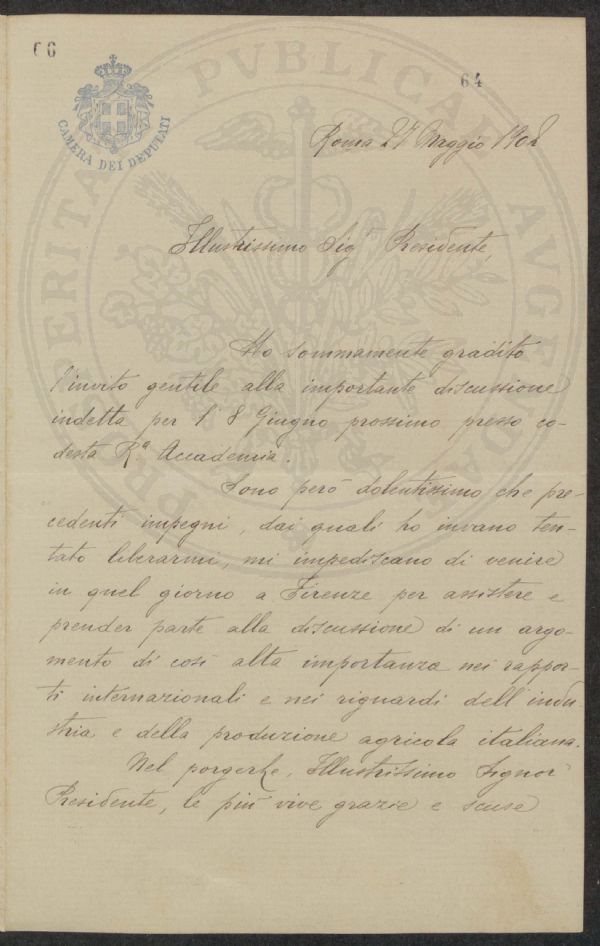 66
64
CAMERA DEI DEPUTATI
PROSPERITATI PVBLICAE AVGENDAE
Roma 27 Maggio 1902
Illustrissimo Sigr Presidente,
Ho sommamente gradito
l'invito gentile alla importante discussione
indetta per l' 8 Giugno prossimo presso co-
desta R.a Accademia.
Sono però dolentissimo che pre-
cedenti impegni, dai quali ho invano ten-
tato liberarmi, mi impediscano di venire
in quel giorno a Firenze per assistere e
prender parte alla discussione di un argo-
mento di così alta importanza nei rappor-
ti internazionali e nei riguardi dell'indu-
stria e della produzione agricola italiana.
Nel porgerLe, Illustrissimo Signor
Presidente, le più vive grazie e scuse